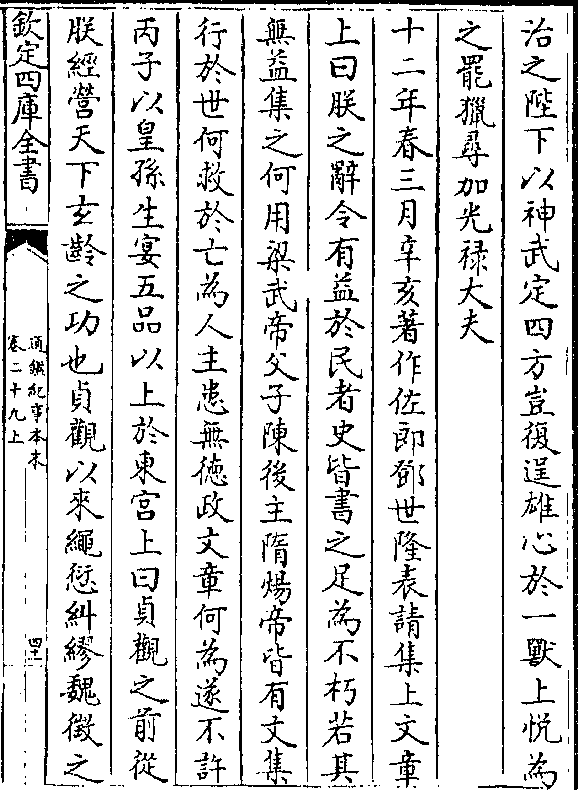 治之陛下以神武定四方豈復逞雄心於一獸上悦為
之罷獵尋加光禄大夫
十二年春三月辛亥著作佐郎鄧世隆表請集上文章
上曰朕之辭令有益於民者史皆書之足為不朽若其
無益集之何用梁武帝父子陳後主隋煬帝皆有文集
行於世何救於亡為人主患無徳政文章何為遂不許
丙子以皇孫生宴五品以上於東宮上曰貞觀之前從
朕經營天下玄齡之功也貞觀以來繩愆糾繆魏徵之
欽定四庫全書
通鑑紀事本末
卷二十九上